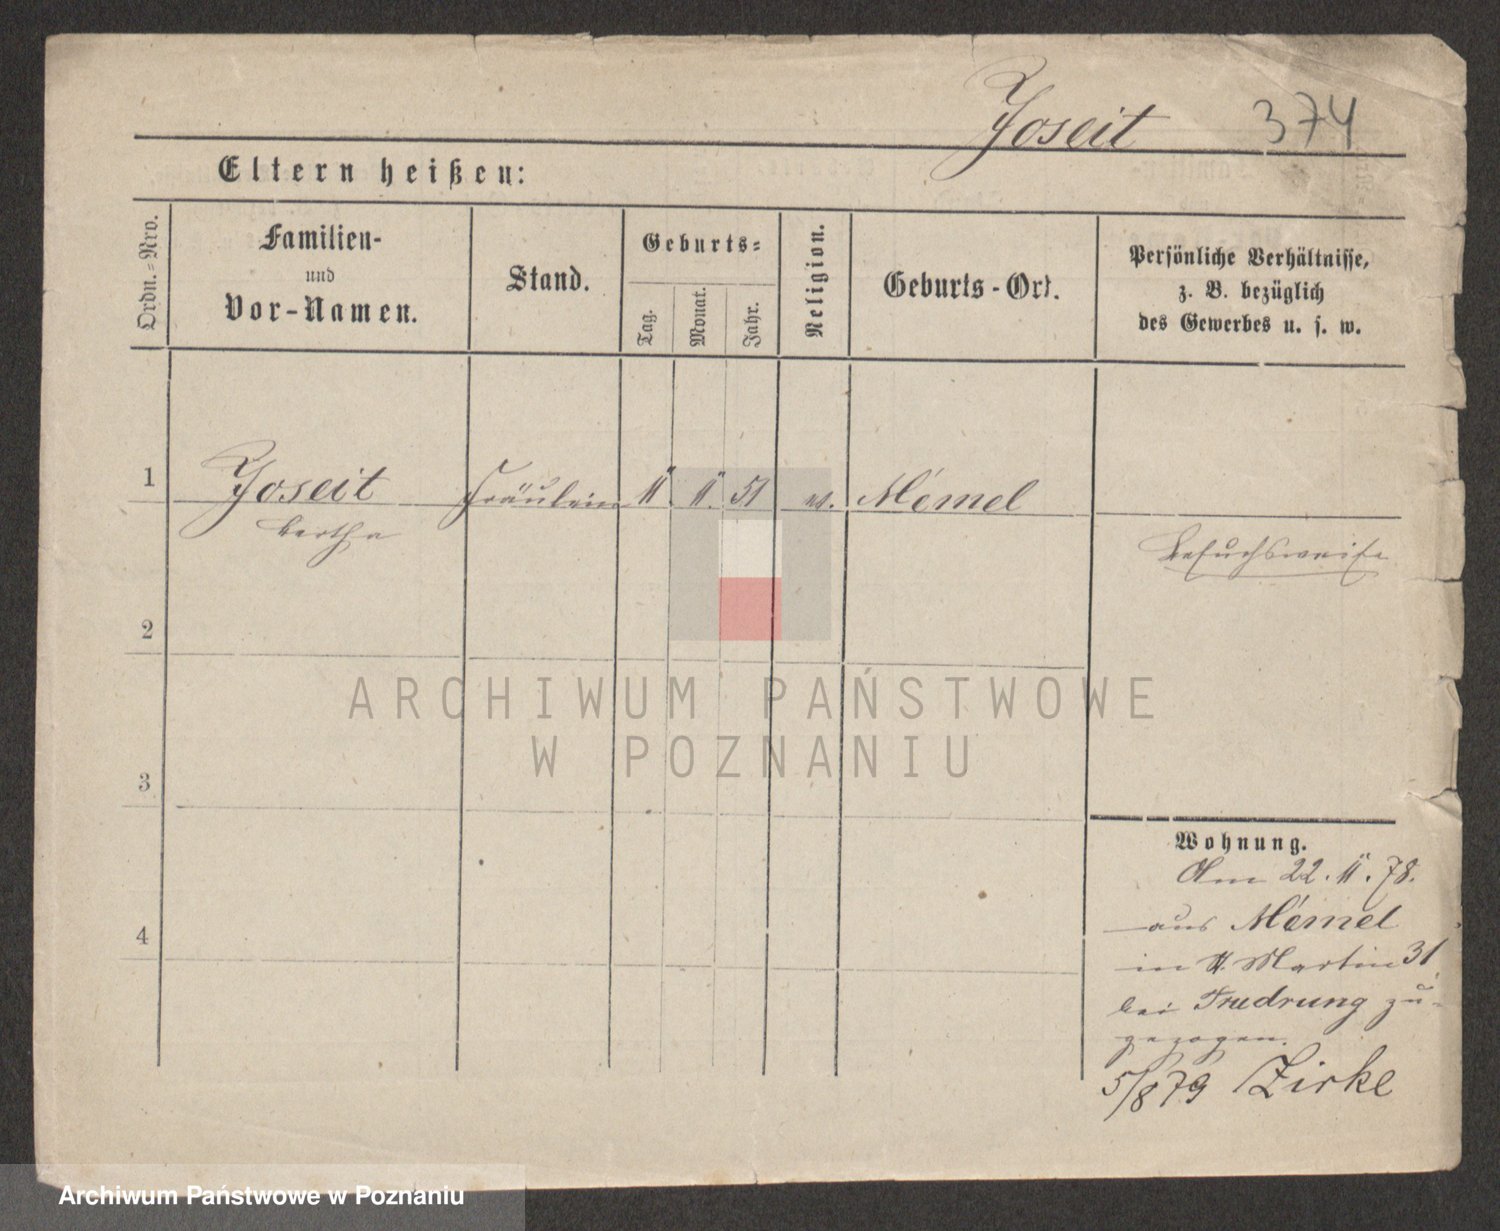 Joseit 374
Eltern heißen:
Ordn.=Nro.
Familien-
und
Vor-Namen.
Stand.
Geburts=
Tag.
Monat.
Jahr.
Religion.
Geburts-Ort.
Persönliche Verhältnisse,
z. B. bezüglich
des Gewerbes u. s. w.
1 Joseit Fräulein 11. 11. 51 Mémel
Bertha
Besuchsweise
2
ARCHIWUM PAŃSTWOWE
W POZNANIU
3
Wohnung.
Am 22. 11. 78.
aus Mémel
4
in St. Martin 31
bei zu-
gezogen.
5/8 79 Zirke
Archiwum Państwowe w Poznaniu